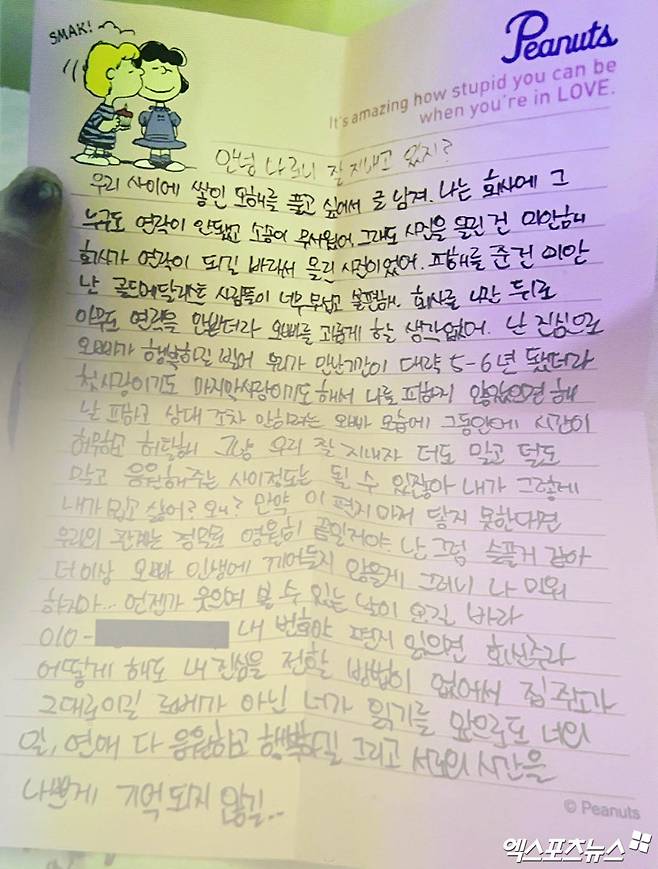 SMAK!
Peanuts
It's amazing how stupid you can be
when you're in LOVE.
안녕 나 잘 지내고 있지?
우리 사이에 쌓인 오해를 풀고 싶어서 글 남겨. 나는 회사에 그
누구도 연락이 안됐고 소송이 무서웠어. 그래도 사진을 올린 건 미안해
회사가 연락이 되길 바라서 올린 사진이었어. 피해를 준건 미안
난 골드메달리스트 사람들이 너무 무섭고 불편해. 회사를 나간 뒤로
아무도 연락을 안받더라 오빠를 괴롭게 할 생각 없어. 난 진심으로
오빠가 행복하길 빌어 우리가 만난기간이 대략 5-6년 됐더라
첫사랑이기도 마지막사랑이기도 해서 나를 피하지 않았으면 해
날 피하고 상대조차 안하려는 오빠 모습에 그동안에 시간이
허무하고 허탈해 그냥 우리 잘 지내자 더도 말고 덜도
말고 응원해주는 사이정도는 될 수 있잖아 내가 그렇게
내가 밉고 싫어? 왜? 만약 이 편지마저 닿지 못한다면
우리의 관계는 정말로 영원히 끝일거야 난 그럼 슬플거 같아
더이상 오빠 인생에 끼어들지 않을게 그러니 나 미워
하지마... 언젠가 웃으며 볼 수 있는 날이 오길 바라
010- 내 번호야 편지 읽으면 회신주라
어떻게 해도 내 진심을 전할 방법이 없어서 집 주소가
그대로이길 로베가 아닌 너가 읽기를 앞으로도 너의
일, 연애 다 응원하고 행복하길 그리고 서로의 시간을
나쁘게 기억되지 않길..
© Peanuts
엑스포츠뉴스